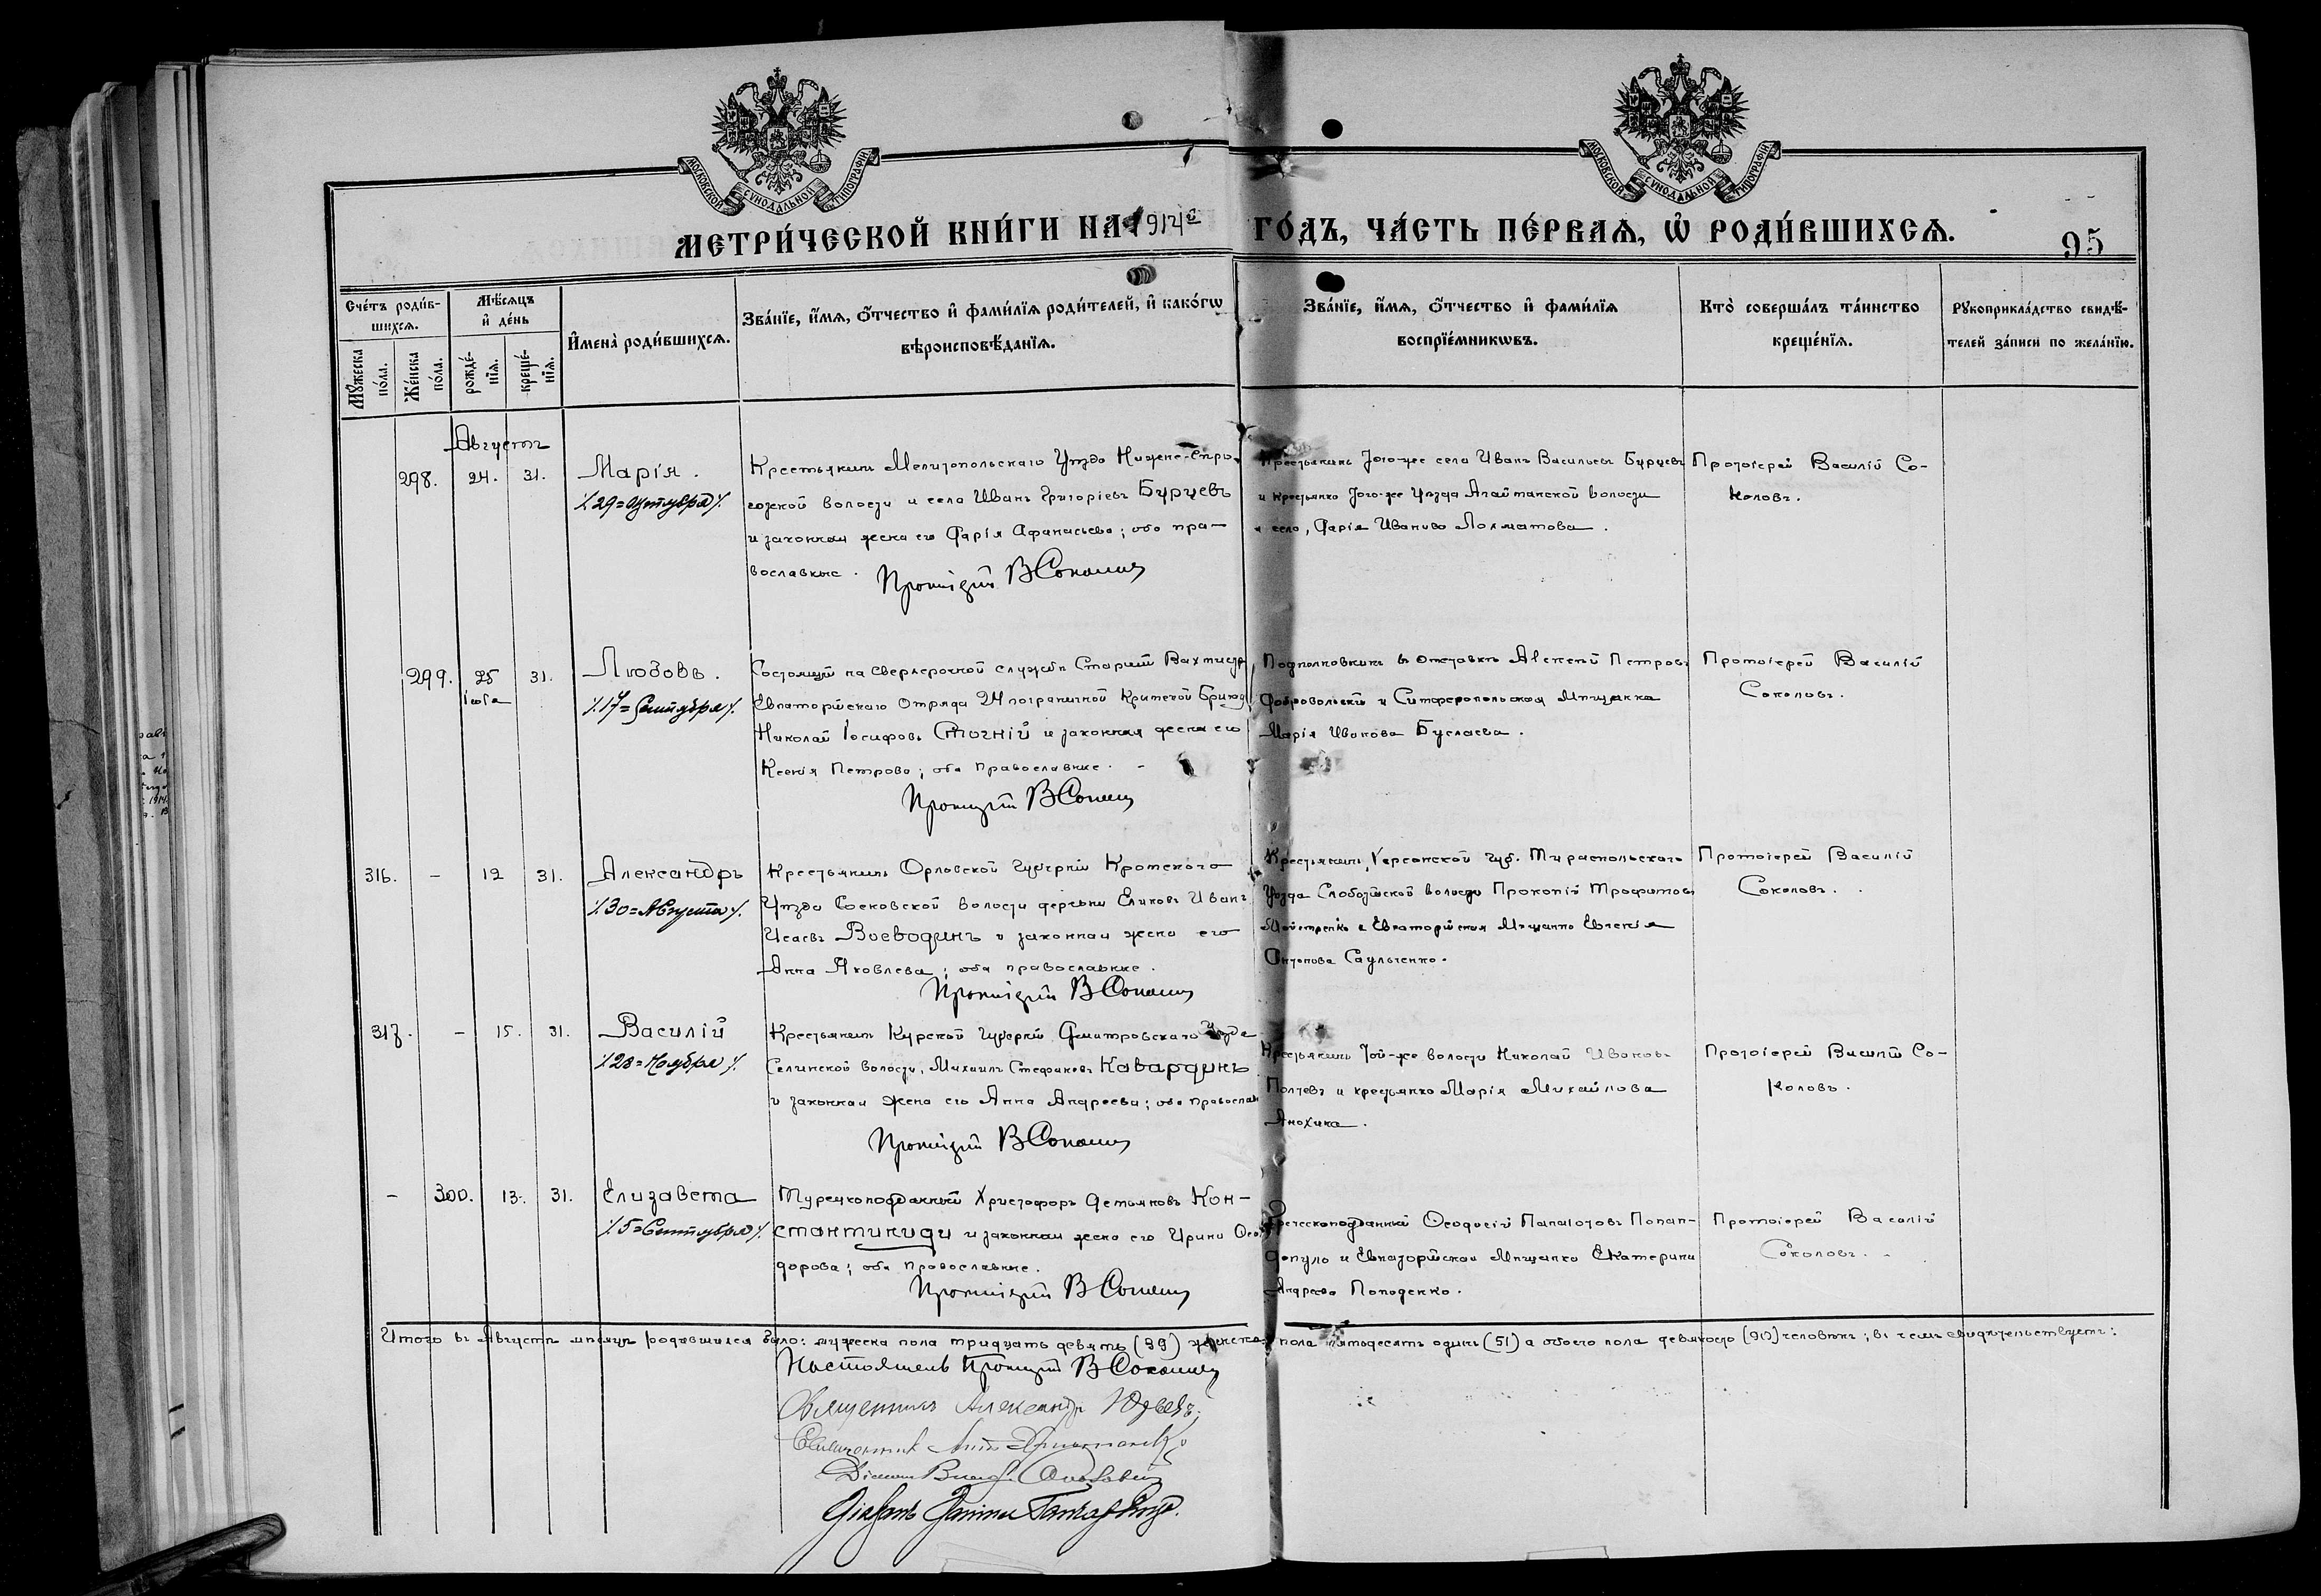 МОСКОВСКОЙ СѴНОДАЛЬНОЙ ТИПОГРАФІИ
МОСКОВСКОЙ СѴНОДАЛЬНОЙ ТИПОГРАФІИ
МЕТРИ́ЧЕСКОЙ КНИ́ГИ НА 1914й ГО́ДЪ, ЧА́СТЬ ПЕ́РВАѦ, Ѡ҆ РОДИ́ВШИХСѦ.
95
Сче́тъ роди́в-
шихсѧ.
Мѣ́сѧцъ
и҆ де́нь
Мꙋ́жеска
по́ла.
Же́нска
по́ла.
рожде́-
нїѧ.
креще́-
нїѧ.
И҆мена̀ роди́вшихсѧ.
Зва́нїе, и҆́мѧ, ѻ҆́тчество и҆ фами́лїѧ роди́телей, и҆ како́гѡ
вѣроисповѣ́данїѧ.
Зва́нїе, и҆́мѧ, ѻ҆́тчество и҆ фами́лїѧ
воспрїе́мникѡвъ.
Кто̀ соверша́лъ та́инство
креще́нїѧ.
Рꙋкоприкла́дство свидѣ́-
телей за́писи по жела́нїю.
Августъ
298. 24. 31. Марія.
29=Октября
Крестьянинъ Мелитопольскаго Уѣзда Нижне-Сѣро-
гозской волости и села Иванъ Григоріевъ Бурцевъ
и законная жена его Дарія Афанасьева; оба пра-
вославные.
Протоіерей В Соколовъ
Крестьянинъ того-же села Иванъ Васильевъ Бурцевъ
и крестьянка того-же Уѣзда Агайманской волости
и села, Дарія Иванова Лохматова.
Протоіерей Василій Со-
коловъ.
299. 25 31. Любовь.
Іюля
17=Сентября
Состоящій на сверхсрочной службѣ Старшій Вахмистръ
Евпаторійскаго Отряда 24 пограничной Крымской Бригады
Николай Іосифовъ Стогній и законная жена его
Ксенія Петрова; оба православные.
Протоіерей В Соколовъ
Подполковникъ въ отставкѣ Алексѣй Петровъ
Добровольскій и Симферопольская Мѣщанка
Марія Иванова Буслаева.
Протоіерей Василій
Соколовъ.
316. – 12 31. Александръ
30=Августа
Крестьянинъ Орловской губерніи Кромского
Уѣзда Сосковской волости деревни Еликовъ Иванъ
Исаевъ Воеводинъ и законная жена его
Анна Яковлева; оба православные.
Протоіерей В Соколовъ
Крестьянинъ Херсонской губ. Тираспольскаго
Уѣзда Слободзейской волости Прокопій Трофимовъ
Майстренко и Евпаторійская Мѣщанка Евгенія
Антонова Саульченко.
Протоіерей Василій
Соколовъ.
317. – 15. 31. Василій
28=Ноября
Крестьянинъ Курской губерніи Дмитровскаго Уѣзда
Селинской волости, Михаилъ Стефановъ Кавардинъ
и законная жена его Анна Андреева; оба православн
Протоіерей В Соколовъ
Крестьянинъ той-же волости Николай Ивановъ
Полтевъ и крестьянка Марія Михайлова
Анохина.
Протоіерей Василій Со-
коловъ.
– 300. 13. 31. Елизавета
5=Сентября
Турецкоподданный Христофоръ Демьяновъ Кон-
стантиниди и законная жена его Ирина Ѳео-
дорова; оба православные.
Протоіерей В Соколовъ
Греческоподданный Ѳеодосій Панаіотовъ Попан-
допуло и Евпаторійская Мѣщанка Екатерина
Андреева Поподенко.
Протоіерей Василій
Соколовъ.
Итого въ Августѣ мѣсяцѣ родившихся было: мужеска пола тридцать девять (39) женска пола пятьдесятъ одинъ (51) а обоего пола девяносто (90) человѣкъ; въ чемъ свидѣтельствуетъ:
Настоятель Протоіерей В Соколовъ
Священникъ Александръ
Священникъ
Діаконъ